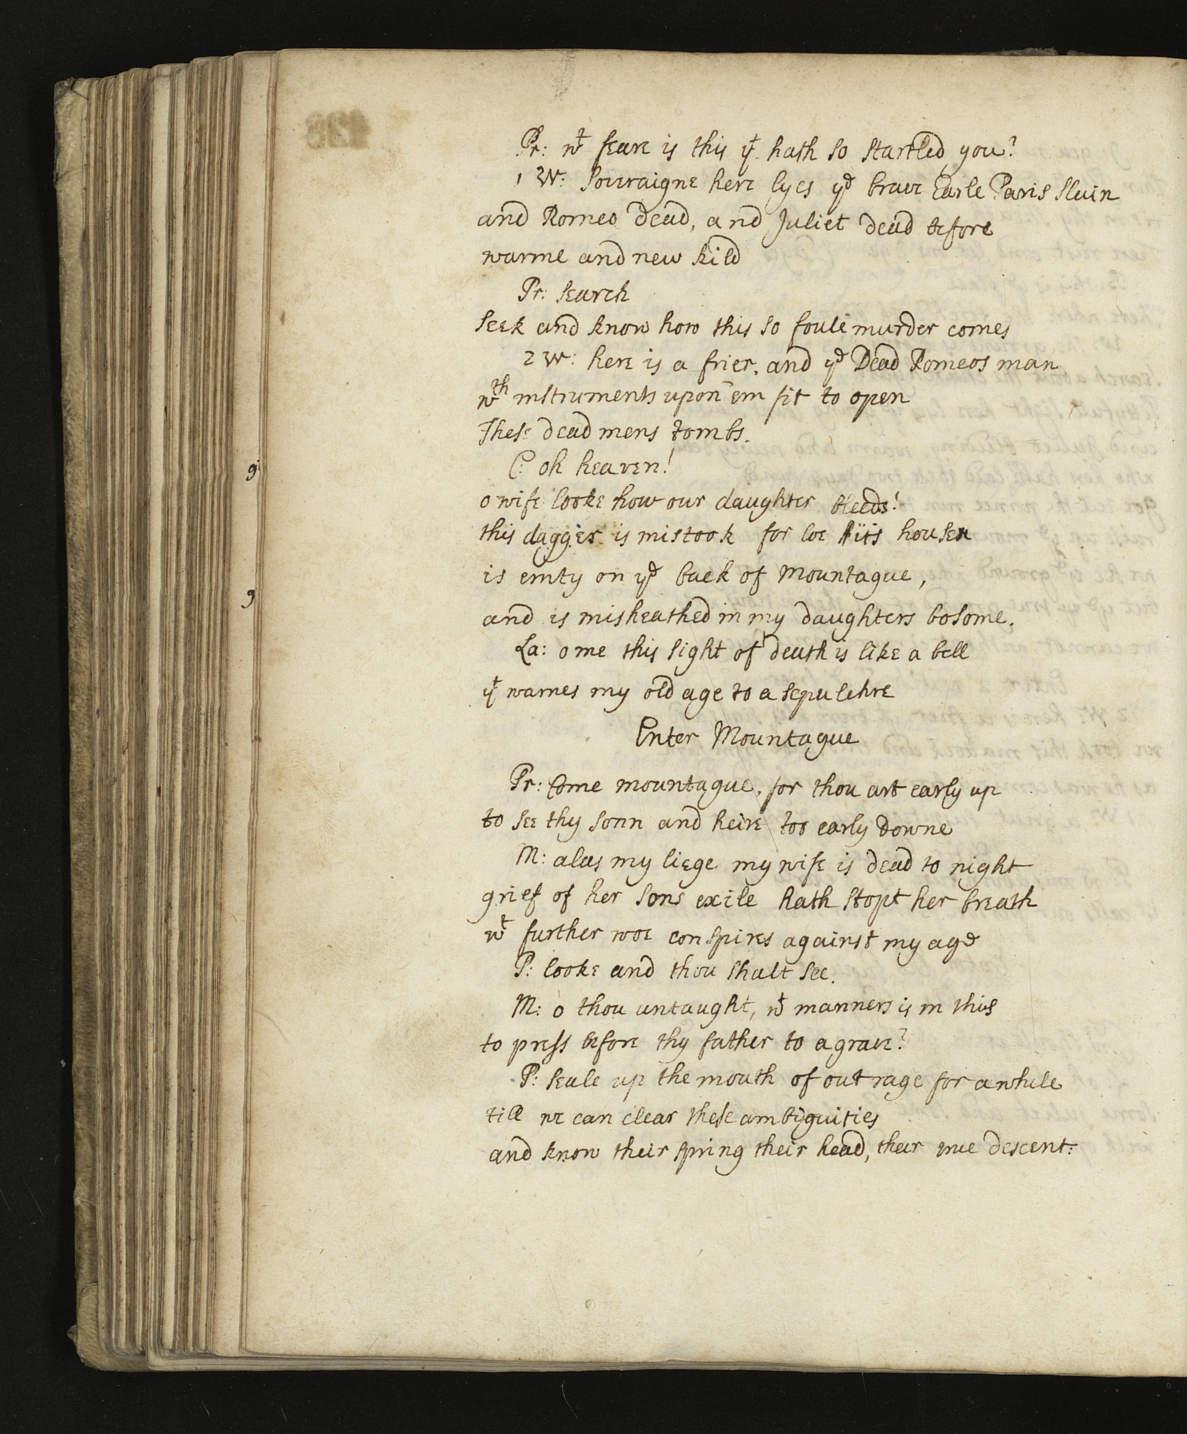 Pr: wt feare is this yt hath so startled you?
1 W: Souraigne here lyes ye brave Earle Paris slain
and Romeo dead, and Juliet dead before
warme and new kild
Pr: search
seek and know how this so foule murder comes
2 W: here is a frier, and ye Dead Romeos man
wth instruments upon 'em fit to open
These dead mens tombs.
C: oh heaven!
o wife looke how our daughter bleeds!
this dagger is mistook for loe its house
is emty on ye back of Mountague,
and is misheathed in my daughters bosome.
La: o me this sight of death is like a bell
yt warnes my old age to a sepulchre
Enter Mountague
Pr: Come mountague, for thou art early up
to see thy sonn and heire too early downe
M: alas my liege my wife is dead to night
grief of her sons exile hath stopt her breath
wt further woe conspires against my age
P: looke and thou shalt see.
M: o thou untaught, wt manners is in this
to press before thy father to a grave?
P: seale up the mouth of outrage for a while
till we can clear these ambiguities
and know their spring their head, their true descent: